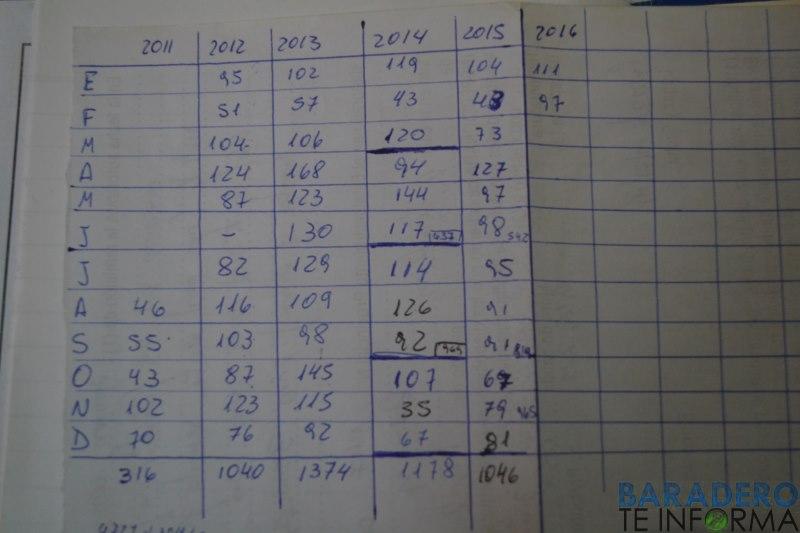 2011 2012 2013 2014 2015 2016
E 95 102 119 104 111
F 51 57 43 43 97
M 104 106 120 73
A 124 168 94 127
M 87 123 144 97
J - 130 117 637 98 542
J 82 129 114 95
A 46 116 109 126 91
S 55 103 98 92 969 91 819
O 43 87 145 107 67
N 102 123 115 35 79 965
D 70 76 92 67 81
316 1040 1374 1178 1046
BARADERO
TE INFORMA